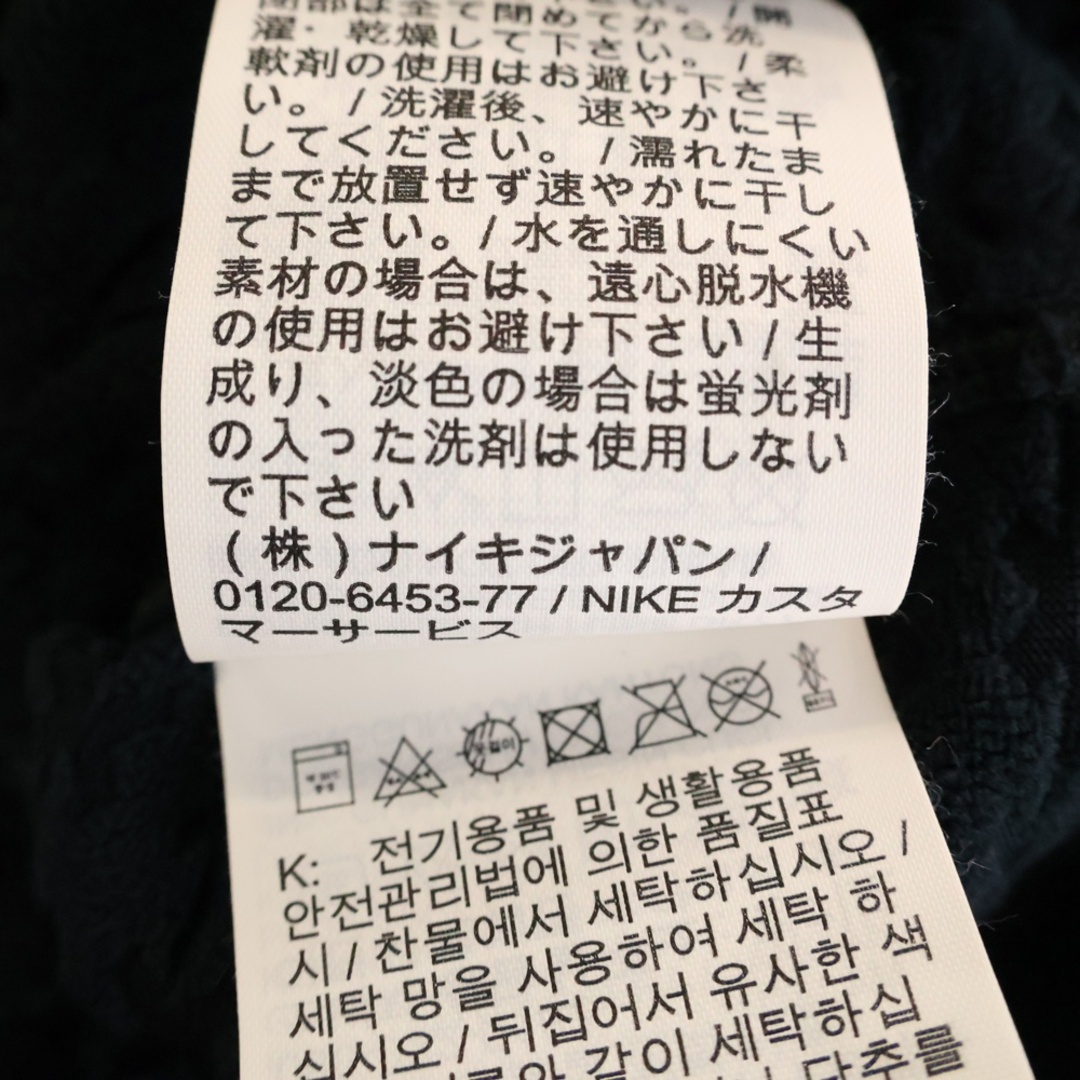 い。/開
閉部は全て閉めてから洗
濯・乾燥して下さい。/柔
軟剤の使用はお避け下さ
い。/洗濯後、速やかに干
してください。/濡れたま
まで放置せず速やかに干し
て下さい。/水を通しにくい
素材の場合は、遠心脱水機
の使用はお避け下さい/生
成り、淡色の場合は蛍光剤
の入った洗剤は使用しない
で下さい
(株)ナイキジャパン/
0120-6453-77 / NIKE カスタ
マーサービス
K: 전기용품 및 생활용품
안전관리법에 의한 품질표
시 / 찬물에서 세탁하십시오 /
세탁 망을 사용하여 세탁 하
십시오 / 뒤집어서 유사한 색
같이 세탁하십
단추를